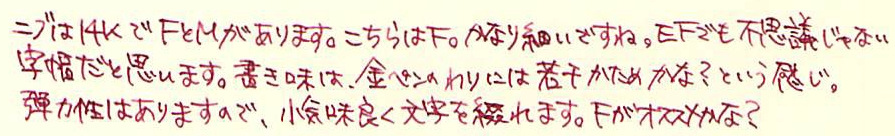 ニブは14KでFとMがあります。こちらはF。かなり細いですね。EFでも不思議じゃない
字幅だと思います。書き味は、金ペンのわりには若干かためかな？という感じ。
弾力性はありますので、小気味良く文字を綴れます。Fがオススメかな？